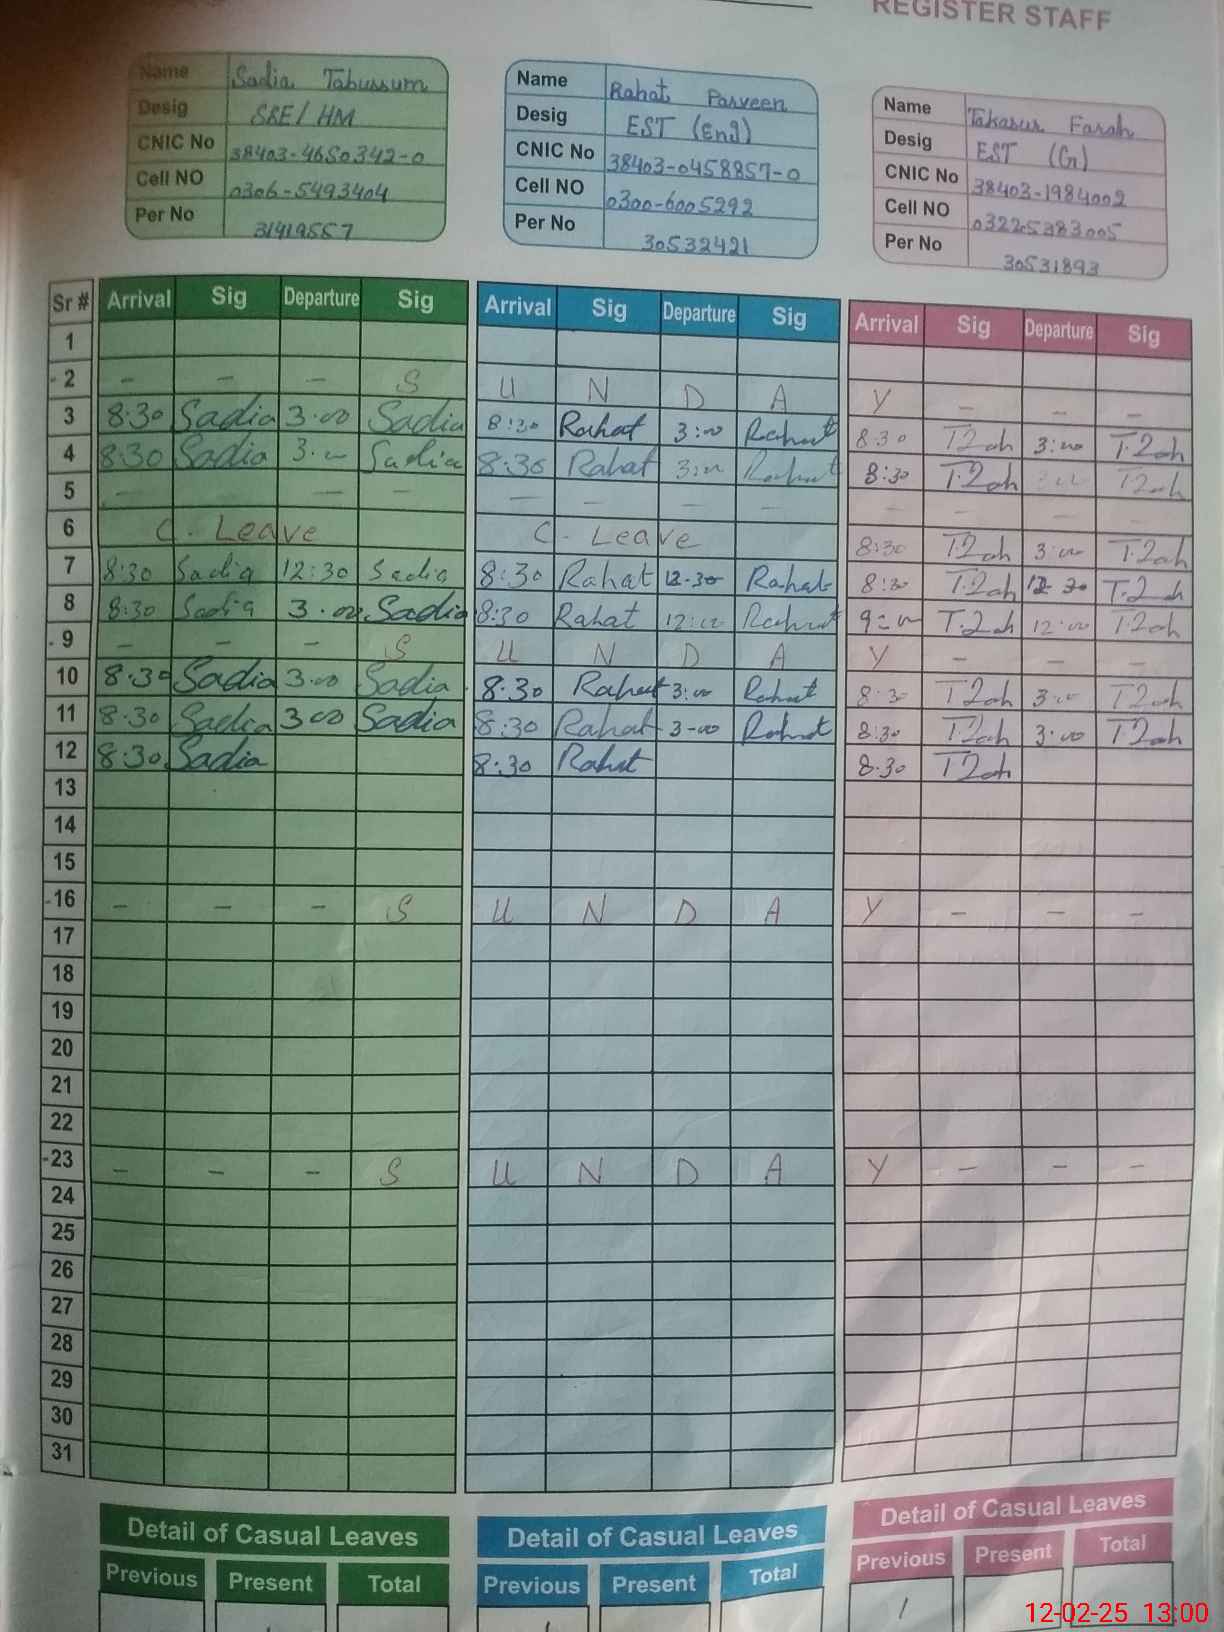 REGISTER STAFF
Name Sadia Tabussum
Desig SSE/HM
CNIC No 38403-4650342-0
Cell NO 0306-5493404
Per No 31419557
Name Rahat Parveen
Desig EST (Eng)
CNIC No 38403-0458857-0
Cell NO 0300-6005292
Per No 30532421
Name Takasur Farah
Desig EST (G)
CNIC No 38403-1984002
Cell NO 03225383005
Per No 30531893
Sr # Arrival Sig Departure Sig Arrival Sig Departure Sig Arrival Sig Departure Sig
1
2 - - - S U N D A Y - - -
3 8:30 Sadia 3:00 Sadia 8:30 Rahat 3:00 Rahat 8:30 3:00
4 8:30 Sadia 3:00 Sadia 8:30 Rahat 3:00 Rahat 8:30 3:00
5 - - - - - - - - - -
6 C. Leave C. Leave 8:30 3:00
7 8:30 Sadia 12:30 Sadia 8:30 Rahat 12-30 Rahat 8:30 12-30
8 8:30 Sadia 3:00 Sadia 8:30 Rahat 12:00 Rahat 9:00 12:00
9 - - - S U N D A Y - - -
10 8:30 Sadia 3:00 Sadia 8:30 Rahat 3:00 Rahat 8:30 3:00
11 8:30 Sadia 3:00 Sadia 8:30 Rahat 3-00 Rahat 8:30 3:00
12 8:30 Sadia 8:30 Rahat 8:30
13
14
15
16 - - - S U N D A Y - - -
17
18
19
20
21
22
23 - - - S U N D A Y - - -
24
25
26
27
28
29
30
31
Detail of Casual Leaves Detail of Casual Leaves Detail of Casual Leaves
Previous Present Total Previous Present Total Previous Present Total
1
12-02-25 13:00